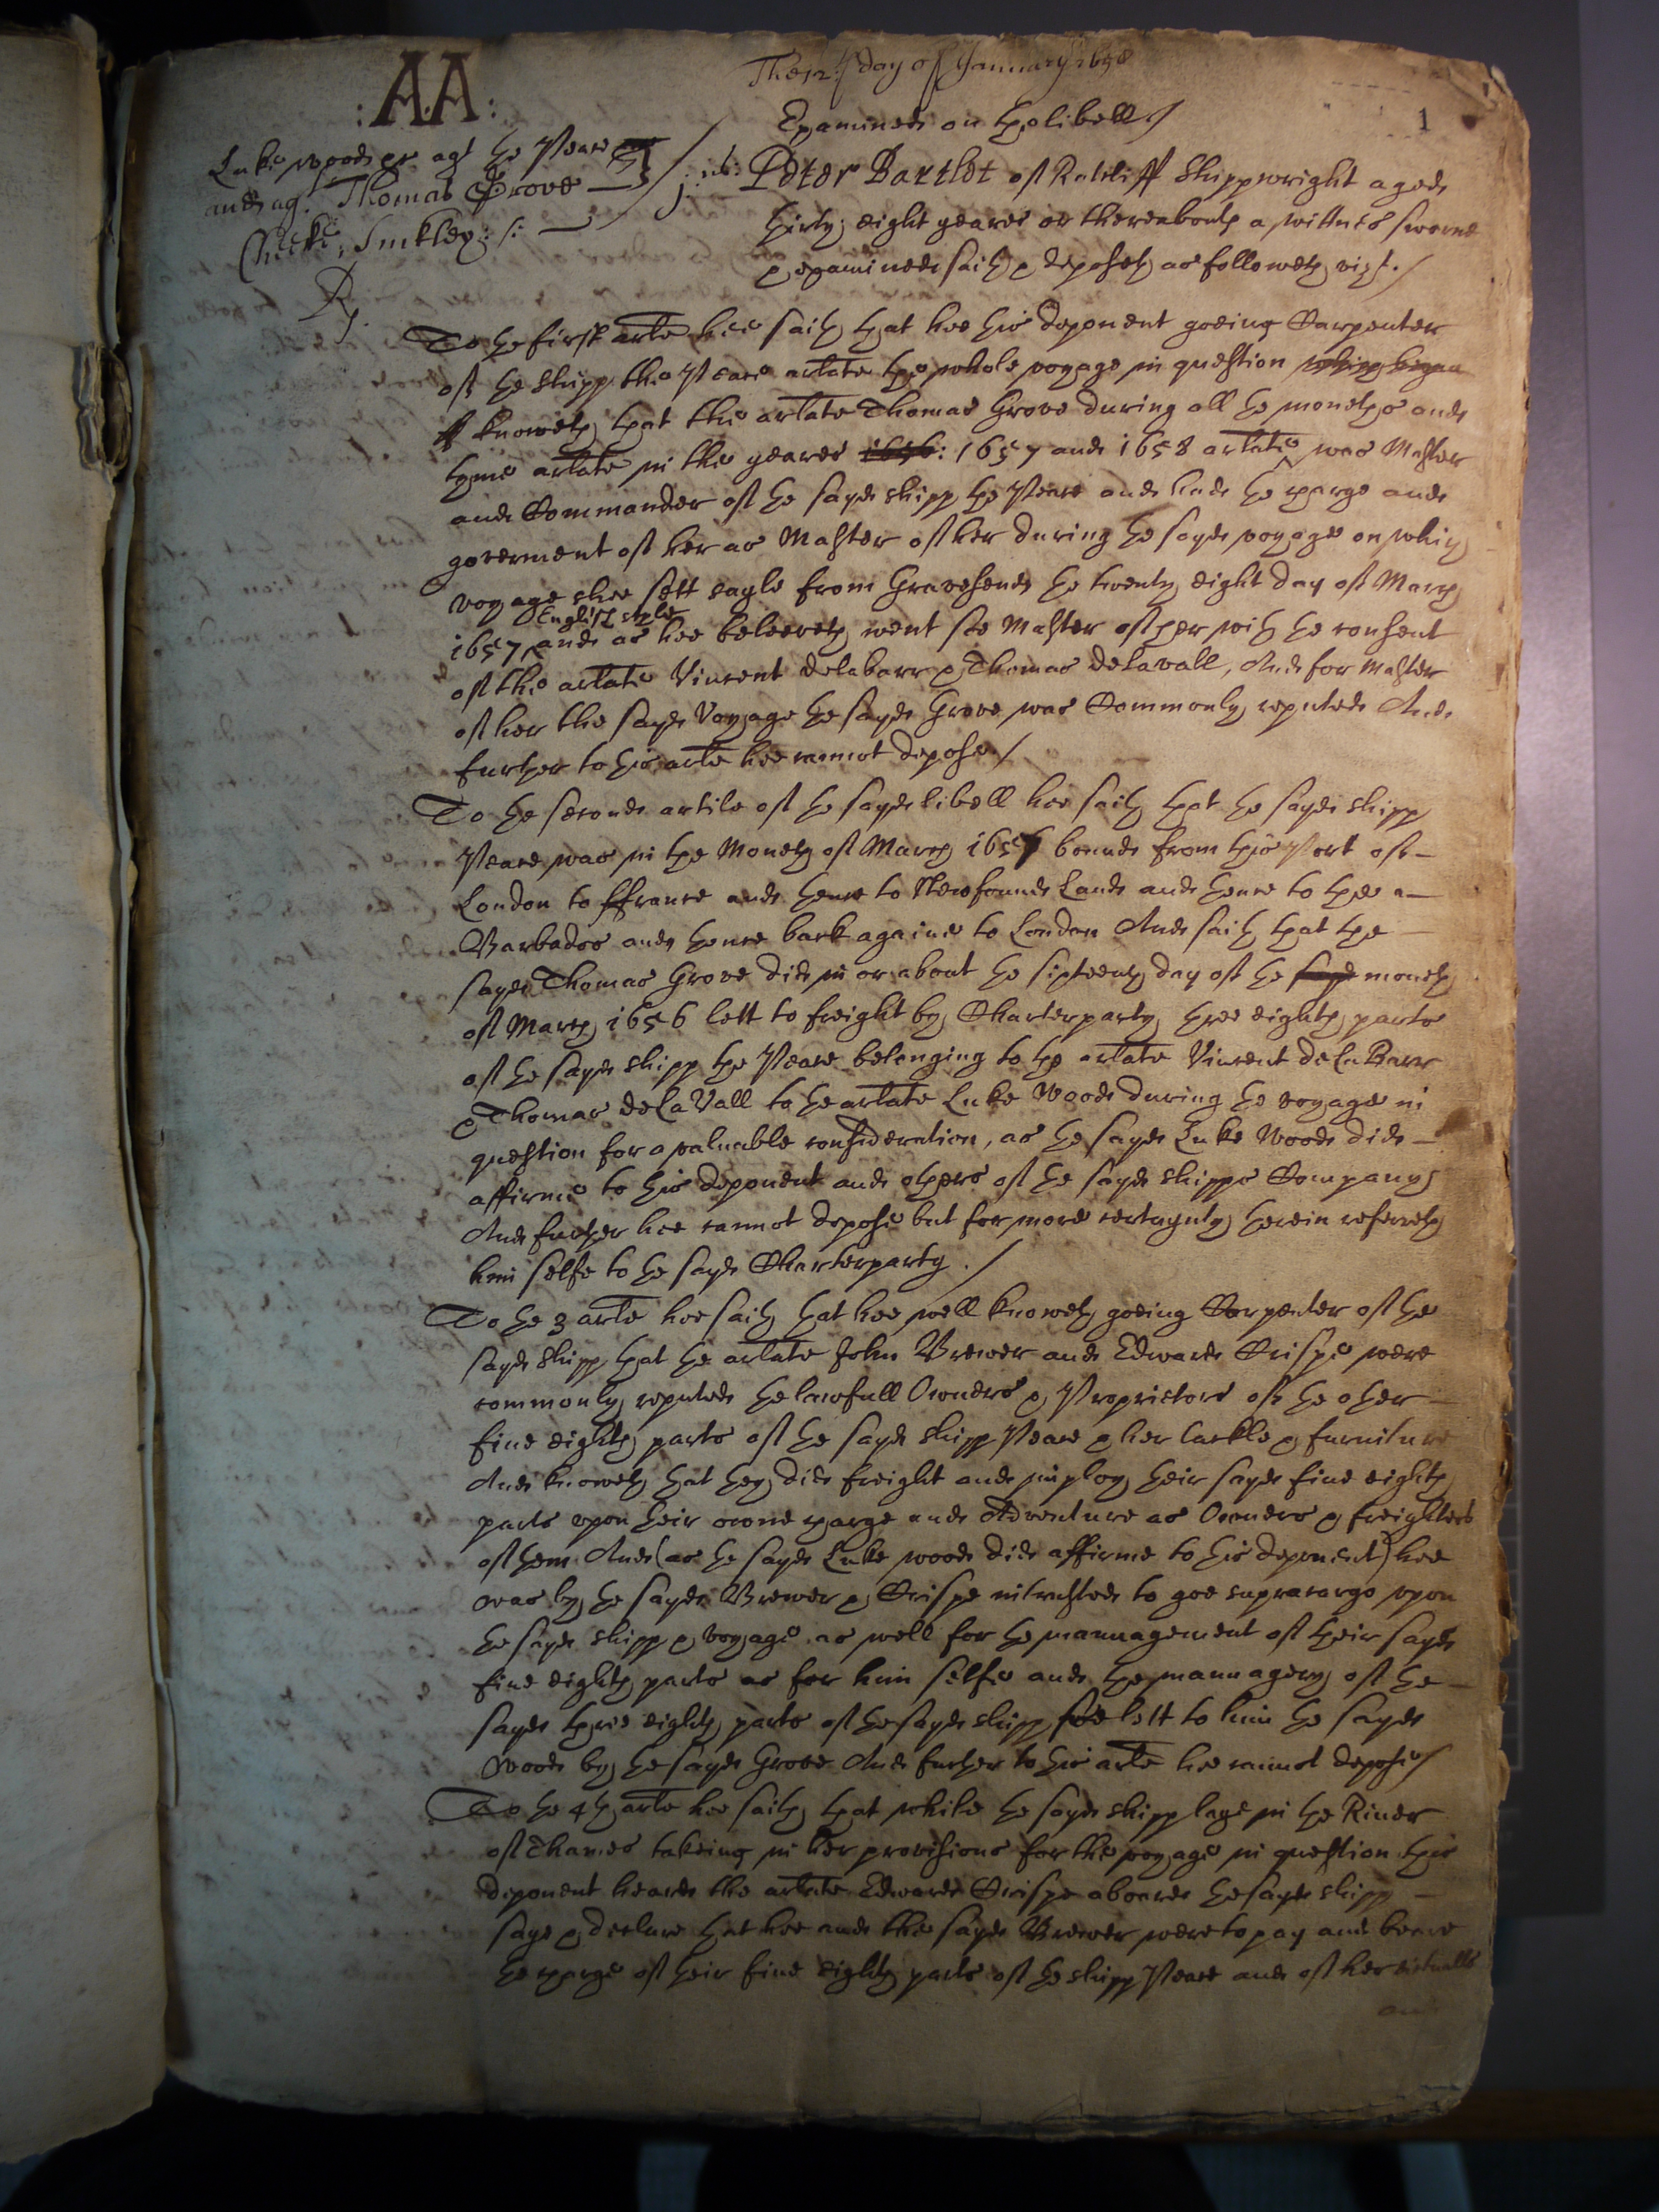 :A.A:
The 12th day of January 1658
1
Examined on the libell /
Luke Woods pr agt the Peare
and agt. Thomas Grove
Cheeke, Suckley :/:
Rp. 1us: Peter Bartlet of Ratcliff Shippwright aged
thirty eight yeares or thereabouts a wittnes sworne
& examined saith & deposeth as followeth vizt. /
To the first arle hee saith that hee this deponent goeing Carpenter
of the shipp the Peare arlate the whole voyage in question
knoweth that the arlate Thomas Grove during all the moneths and
tyme arlate in the yeares 1656: 1657 and 1658 arlate was Master
and Commander of the sayd shipp the Peare and had the charge and
goverment of her as Master of her during the sayd voyage on which
voyage shee sett sayle from Gravesend the twenty eight day of March
English style
1657 and as hee beleeveth went soe Master of her with the consent
of the arlate Vincent delabarr & Thomas delavall, And for Master
of her the sayd Voyage the sayd Grove was Commonly reputed And
further to this arle hee cannot depose /
To the second article of the sayd libell hee saith that the sayd shipp
Peare was in the Moneth of March 1656 bound from this Port of
London to ffrance and thence to Newfound Land and thence to the
Barbados and thence back againe to London And saith that the
sayd Thomas Grove did in or about the sixteenth day of the sayd moneth
of March 1656 lett to freight by Charterparty three eighth parts
of the sayd shipp the Peare belonging to the arlate Vincent de La Barr
& Thomas de La Vall to the arlate Luke Woods during the voyage in
question for a valuable consideration, as the sayd Luke Woods did
affirme to this deponent and others of the sayd shipps Company
And further hee cannot depose but for more certaynty herein referreth
him selfe to the sayd Charterparty. /
To the 3 arle hee saith that hee well knoweth goeing Carpenter of the
sayd shipp that the arlate John Brewer and Edward Crispe were
commonly reputed the lawfull Owners & Proprietors of the other
five eighth parts of the sayd shipp Peare & her tackle & furniture
And knoweth that they did freight and imploy their sayd five eighth
parts upon their owne charge and Adventure as Owners & freighters
of them And (as the sayd Luke Woods did affirme to this deponent) hee
was by the sayd Brewer & Crispe intrusted to goe supracargo upon
the sayd shipp & voyage as well for the mannagement of their sayd
five eighth parts as for him selfe and the mannagery of the
sayd three eighth parts of the sayd shipp soe lett to him the sayd
Woods by the sayd Grove And further to this arle hee cannot depose /
To the 4th arle hee saith that while the sayd shipp laye in the River
of Thames takeing in her provisions for the voyage in question this
deponent heard the arlate Edward Crispe aboard the sayd shipp
saye & declare that hee and the sayd Brewer were to pay and beare
the charge of their five eighth parts of the shipp Peare and of her victualls
and